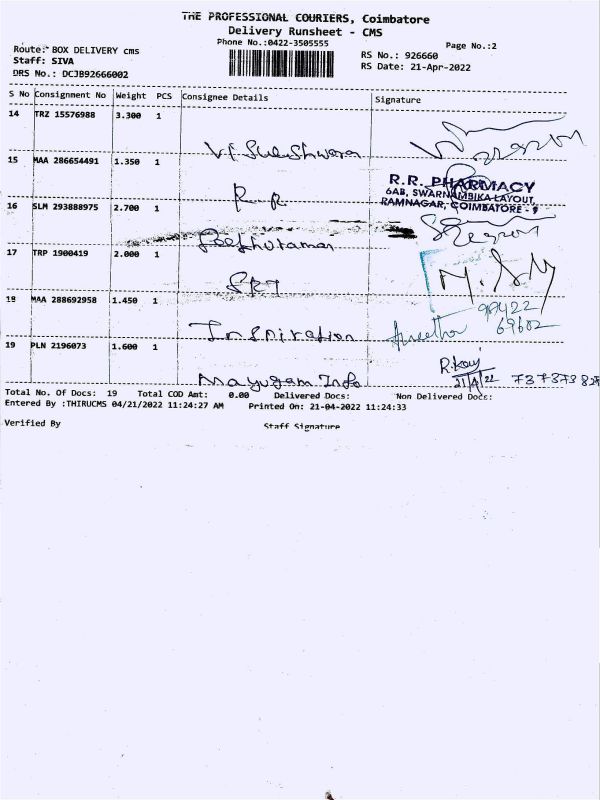 THE PROFESSIONAL COURIERS, Coimbatore
Delivery Runsheet - CMS
Phone No.:0422-3505555
Page No.:2
Route: BOX DELIVERY CMS
RS No.: 926660
Staff: SIVA
RS Date: 21-Apr-2022
DRS No.: DCJB92666002
S No Consignment No Weight PCS Consignee Details Signature
14 TRZ 15576988 3.300 1
15 MAA 286654491 1.350 1
R R
R.R. PHARMACY
6AB, SWARNAMBIKA LAYOUT,
RAMNAGAR, COIMBATORE - 9
16 SLM 293888975 2.700 1
17 TRP 1900419 2.000 1
18 MAA 288692958 1.450 1
Inspiration
98422
69602
19 PLN 2196073 1.600 1
Mayugam Info
21/4/22
Total No. Of Docs: 19 Total COD Amt: 0.00 Delivered Docs: Non Delivered Docs:
Entered By :THIRUCMS 04/21/2022 11:24:27 AM Printed On: 21-04-2022 11:24:33
Verified By Staff Signature